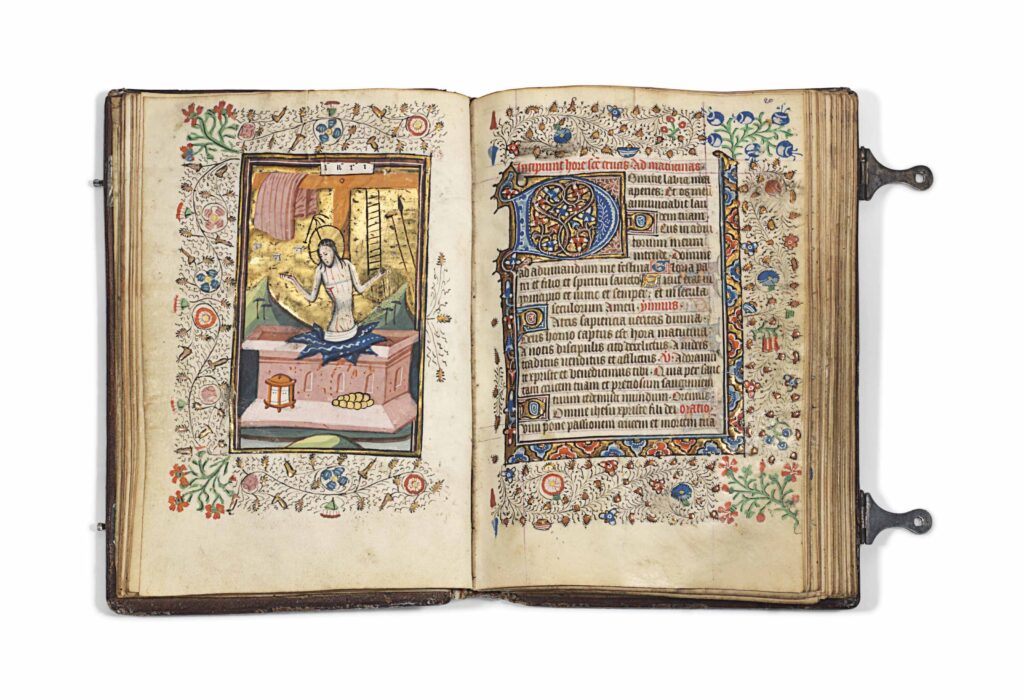 INRI
20
Incipiunt hore sce crucis Ad matutinas
Domine labia mea
aperies Et os meū
annunciabit lau
dem tuam
Deus in adiu
torium meum
intende Domine
ad adiuuandum me festina Gloria pa
tri et filio et spiritui sancto Sicut erat in
principio et nunc et semper et in secula
seculorum amen ympnus
Patris sapiencia ueritas diuina
deus homo captus est hora matutina
A notis discipulis cito derelictus A iudeis
traditus uenditus et afflictus V Adoramus
xpriste et benedicimus tibi Quia per sanc
tam crucem tuam et preciosum sanguinem
tuum redemisti mundum Oremus
Domine ihesu xpriste fili dei oratio
uiui pone passionem crucem et mortem tuā